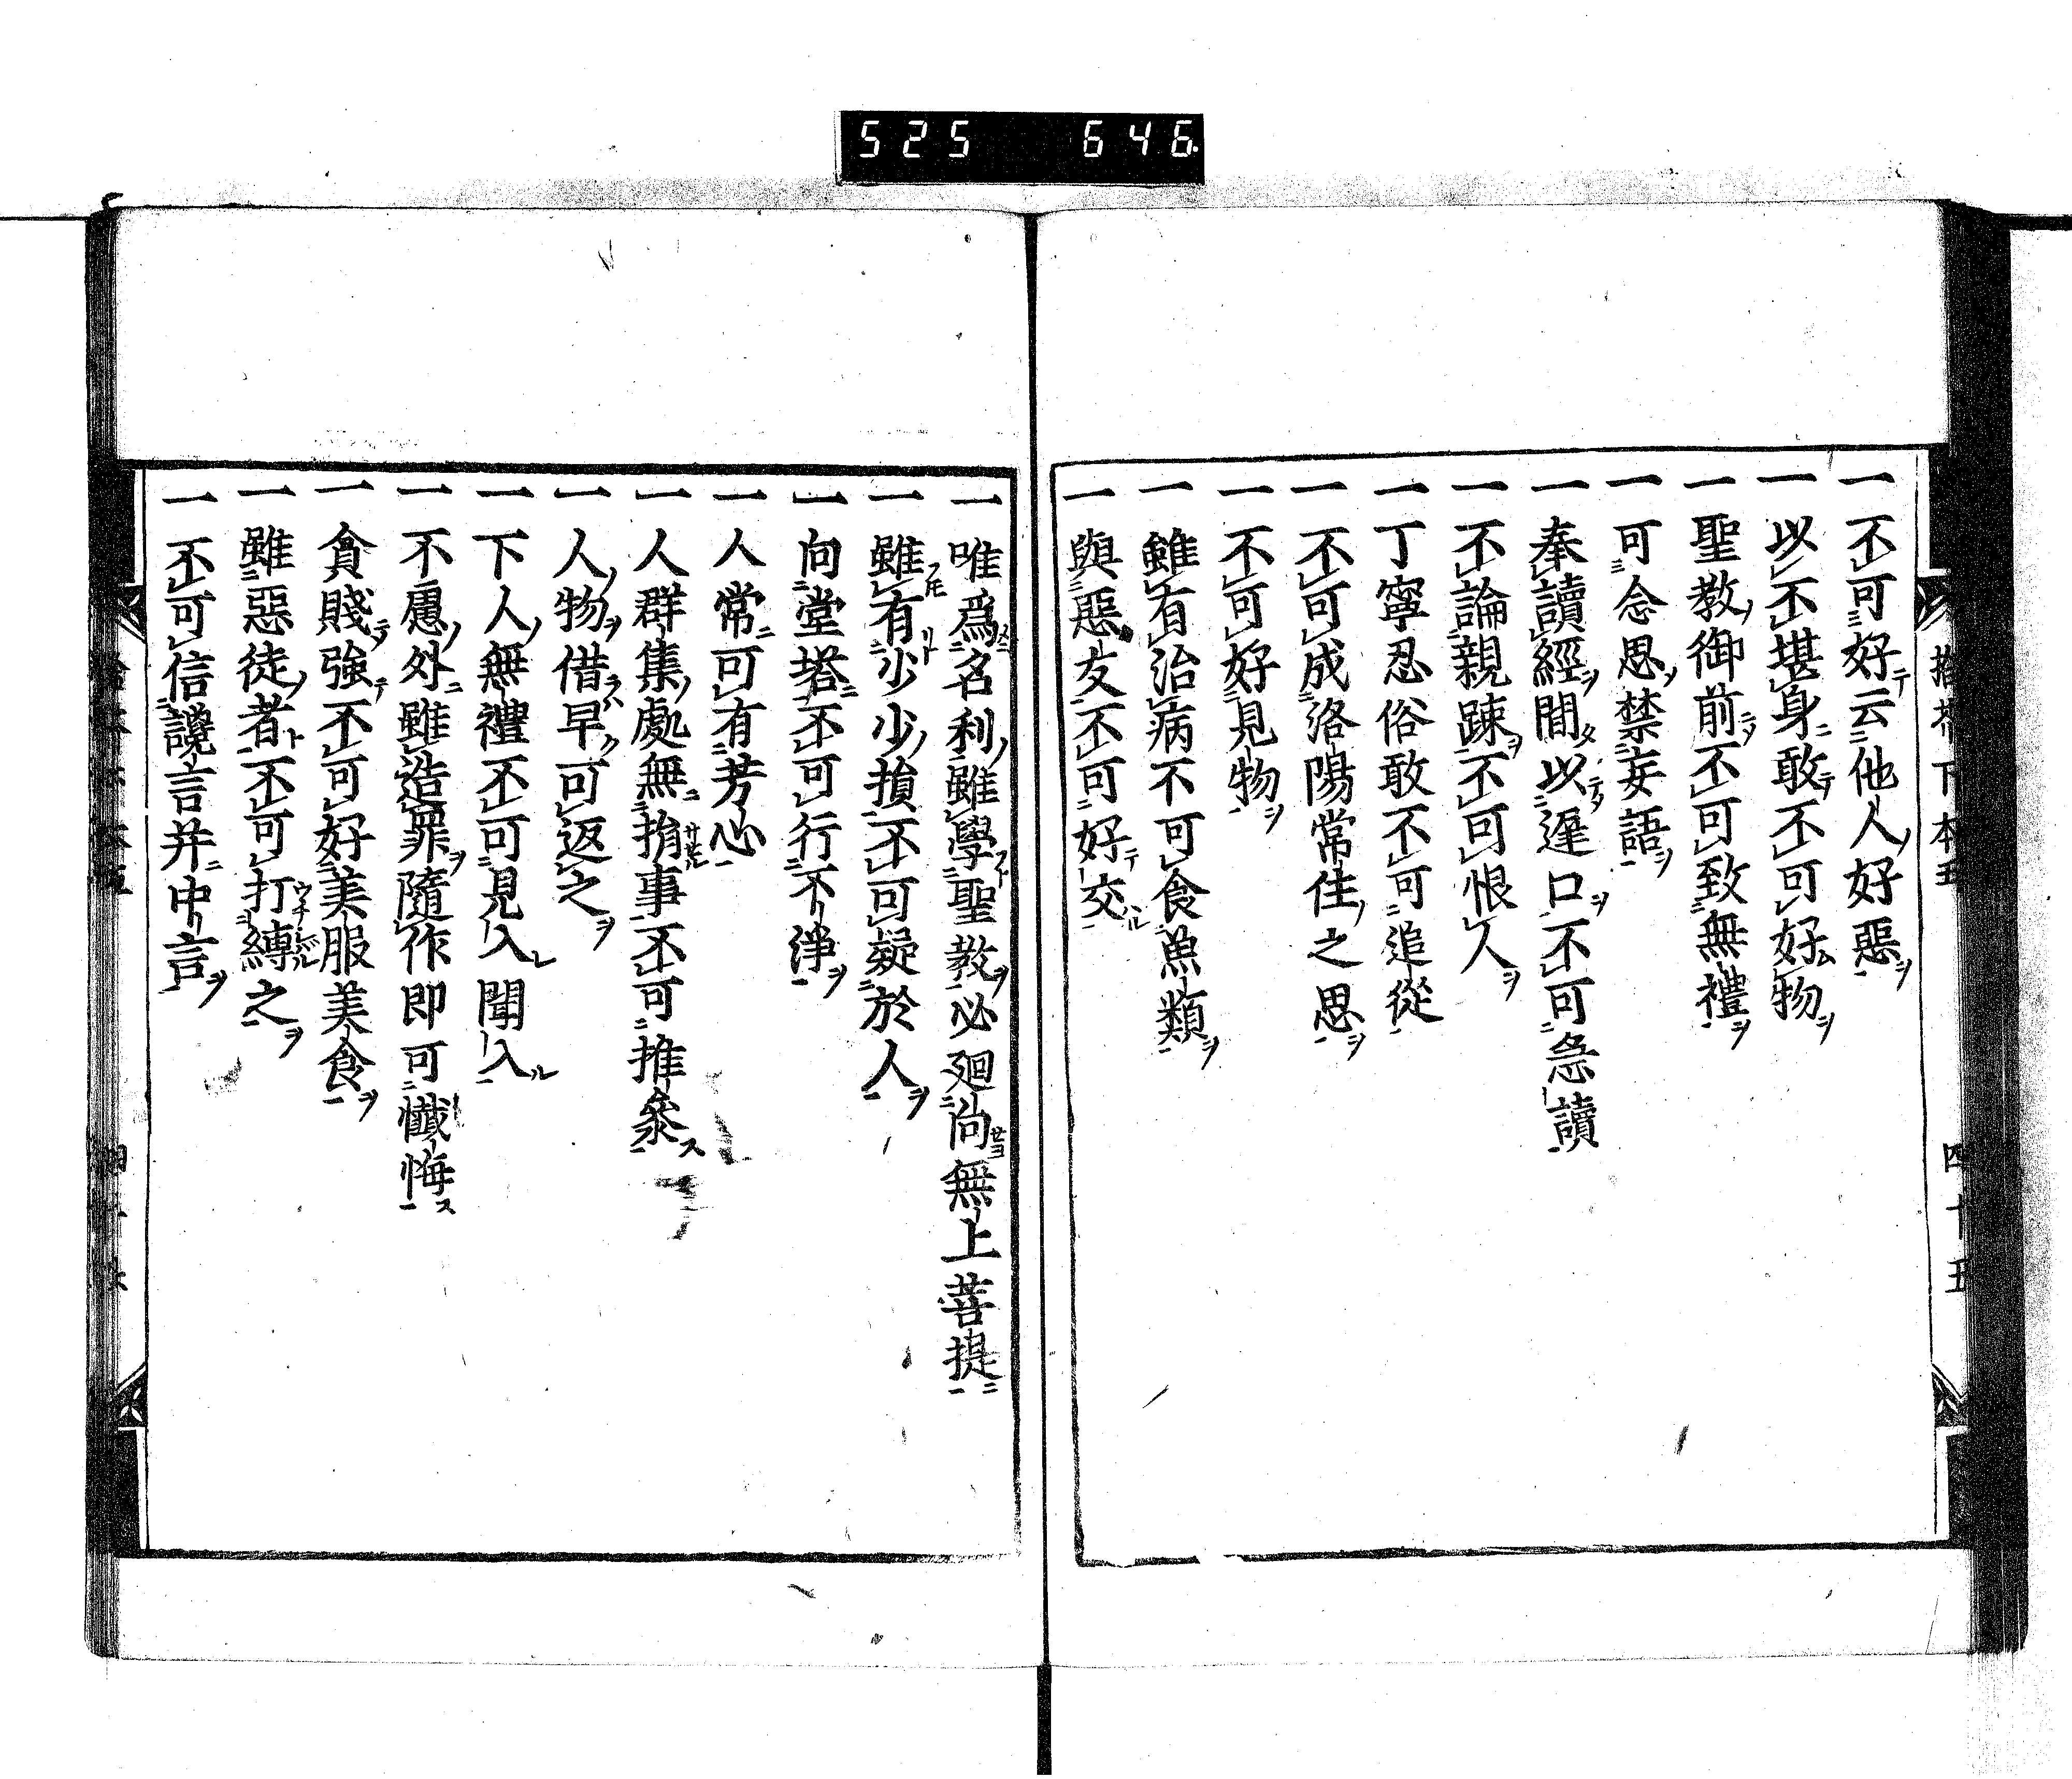 525 646
一不可好云他人好惡
一以不堪身敢不可好物
一聖教御前不可致無禮
一可念思禁妄語
一奉讀經間以遲口不可急讀
一不論親踈不可恨人
一丁寧忍俗敢不可追從
一不可成洛陽常住之思
一不可好見物
一雖有治病不可食魚類
一與惡友不可好交
一唯爲名利雖學聖教必廻尚無上菩提
一雖有少少損不可疑於人
一向堂塔不可行不淨
一人常可有芳心
一人群集處無指事不可推參
一人物借早可返之
一下人無禮不可見入聞入
一不慮外雖造罪隨作即可懺悔
一貪賤強不可好美服美食
一雖惡徒者不可打縛之
一不可信讒言并中言
下本五
四十五